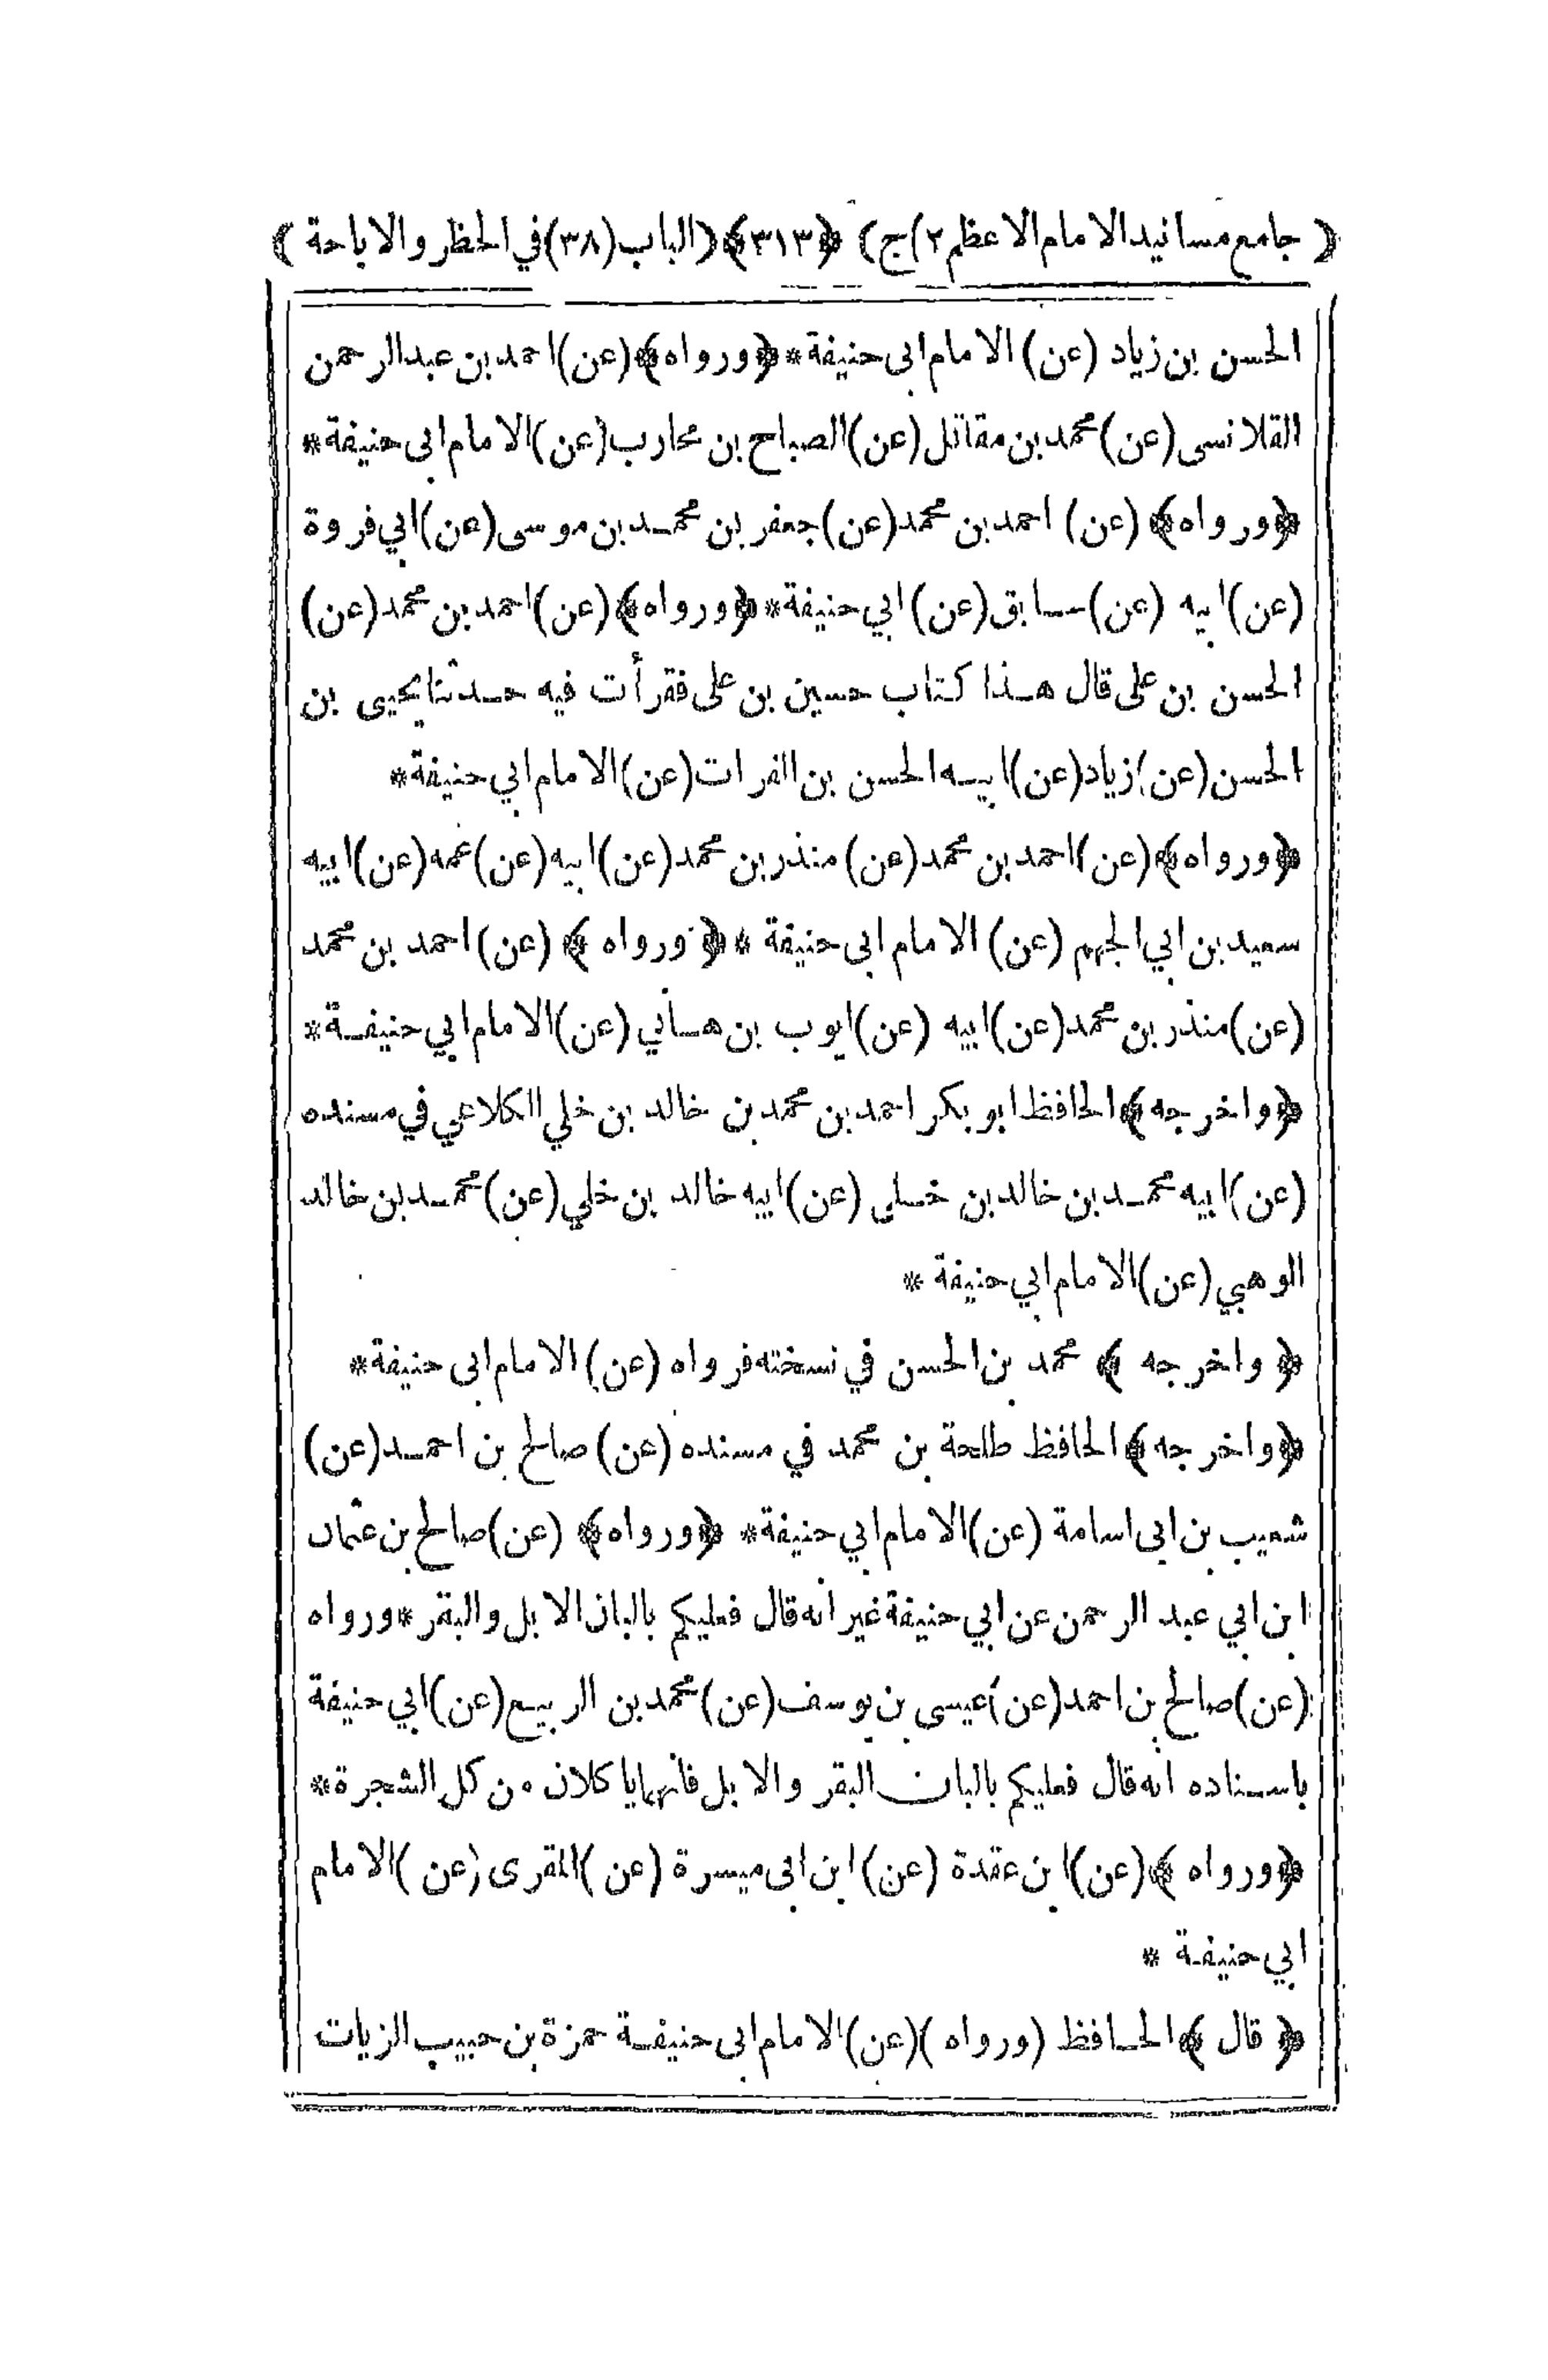 ﴿ جامع مسانيد الامام الاعظم ٢)ج) ﴿٣١٣﴾ (الباب(٣٨)في الحظر والاباحة ﴾
الحسن بن زياد (عن) الامام ابى حنيفة * ﴿ورواه﴾ (عن) احمد بن عبد الرحمن
القلانسى (عن) محمد بن مقاتل (عن) الصباح بن محارب (عن) الامام ابى حنيفة *
﴿ورواه﴾ (عن) احمد بن محمد (عن) جعفر بن محمد بن موسى (عن) ابي فروة
(عن) ابيه (عن) سابق (عن) ابي حنيفة * ﴿ورواه﴾ (عن) احمد بن محمد (عن)
الحسن بن على قال هذا كتاب حسين بن على فقرأت فيه حدثنا يحيى بن
الحسن (عن) زياد (عن) ابيه الحسن بن الفرات (عن) الامام ابي حنيفة *
﴿ورواه﴾ (عن) احمد بن محمد (عن) منذر بن محمد (عن) ابيه (عن) عمه (عن) ابيه
سعيد بن ابي الجهم (عن) الامام ابى حنيفة * ﴿ ورواه ﴾ (عن) احمد بن محمد
(عن) منذر بن محمد (عن) ابيه (عن) ايوب بن هانى (عن) الامام ابي حنيفة *
﴿واخرجه﴾ الحافظ ابو بكر احمد بن محمد بن خالد بن خلي الكلاعي في مسنده
(عن) ابيه محمد بن خالد بن خلى (عن) ابيه خالد بن خلي (عن) محمد بن خالد
الوهبي (عن) الامام ابي حنيفة *
﴿ واخرجه ﴾ محمد بن الحسن في نسخته فرواه (عن) الامام ابى حنيفة *
﴿واخرجه﴾ الحافظ طلحة بن محمد في مسنده (عن) صالح بن احمد (عن)
شعيب بن ابى اسامة (عن) الامام ابي حنيفة * ﴿ورواه﴾ (عن) صالح بن عثمان
ابن ابي عبد الرحمن عن ابي حنيفة غير انه قال فعليكم بالبان الابل والبقر * ورواه
(عن) صالح بن احمد (عن) عيسى بن يوسف (عن) محمد بن الربيع (عن) ابي حنيفة
باسناده انه قال فعليكم بالبان البقر والابل فانهما ياكلان من كل الشجرة *
﴿ورواه ﴾ (عن) ابن عقدة (عن) ابن ابى ميسرة (عن) المقرى (عن) الامام
ابي حنيفة *
﴿ قال ﴾ الحافظ (ورواه) (عن) الامام ابى حنيفة حمزة بن حبيب الزيات